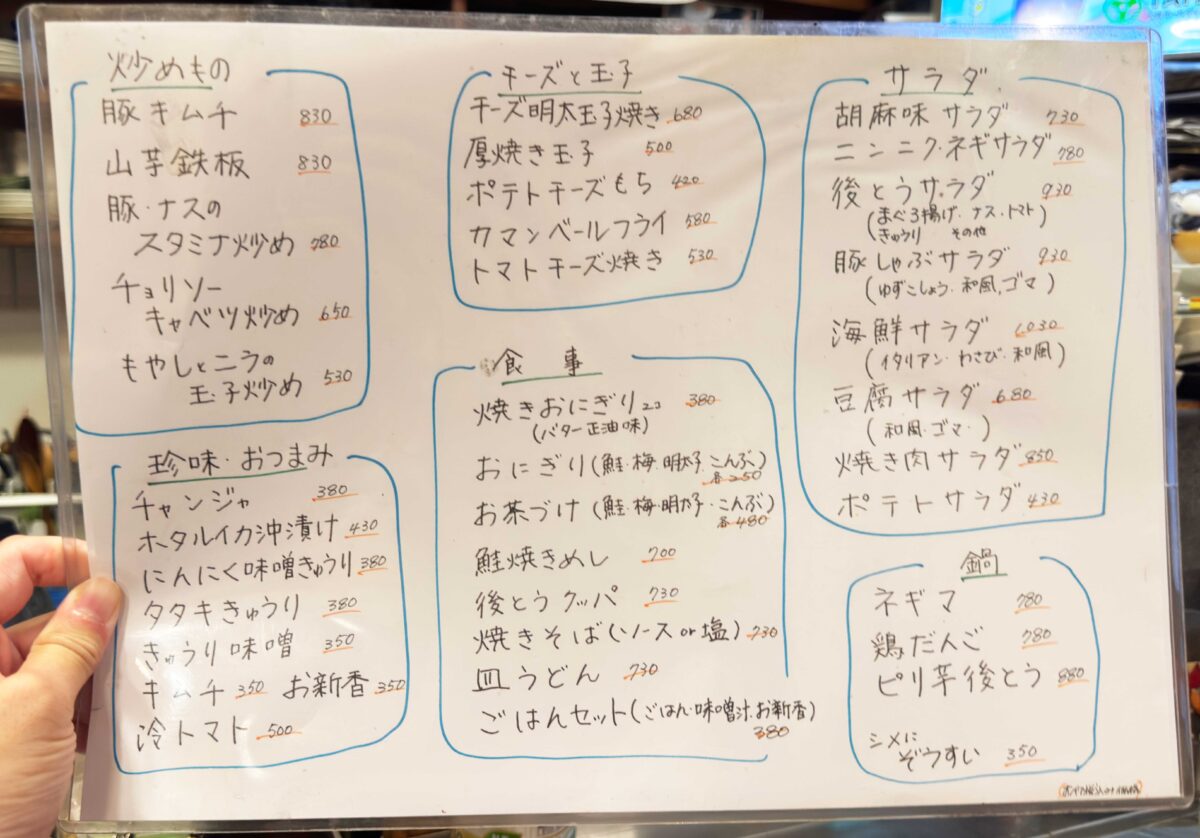 炒めもの
豚キムチ 830
山芋鉄板 830
豚・ナスの
スタミナ炒め 780
チョリソー
キャベツ炒め 650
もやしとニラの
玉子炒め 530
珍味・おつまみ
チャンジャ 380
ホタルイカ沖漬け 430
にんにく味噌きゅうり 380
タタキきゅうり 380
きゅうり味噌 350
キムチ 350 お新香 350
冷トマト 500
チーズと玉子
チーズ明太玉子焼き 680
厚焼き玉子 500
ポテトチーズもち 420
カマンベールフライ 580
トマトチーズ焼き 530
食事
焼きおにぎり 2コ 380
(バター正油味)
おにぎり(鮭・梅・明太子・こんぶ)
各250
お茶づけ(鮭・梅・明太子・こんぶ)
各480
鮭焼きめし 700
後とうクッパ 730
焼きそば(ソースor塩) 730
皿うどん 730
ごはんセット(ごはん・味噌汁・お新香)
380
サラダ
胡麻味サラダ 730
ニンニク・ネギサラダ 780
後とうサラダ 930
(まぐろ揚げ・ナス・トマト)
きゅうり その他
豚しゃぶサラダ 930
(ゆずこしょう・和風,ゴマ)
海鮮サラダ 1,030
(イタリアン・わさび・和風)
豆腐サラダ 680
(和風・ゴマ・)
焼き肉サラダ 850
ポテトサラダ 430
鍋
ネギマ 780
鶏だんご 780
ピリ辛後とう 880
シメに
ぞうすい 350